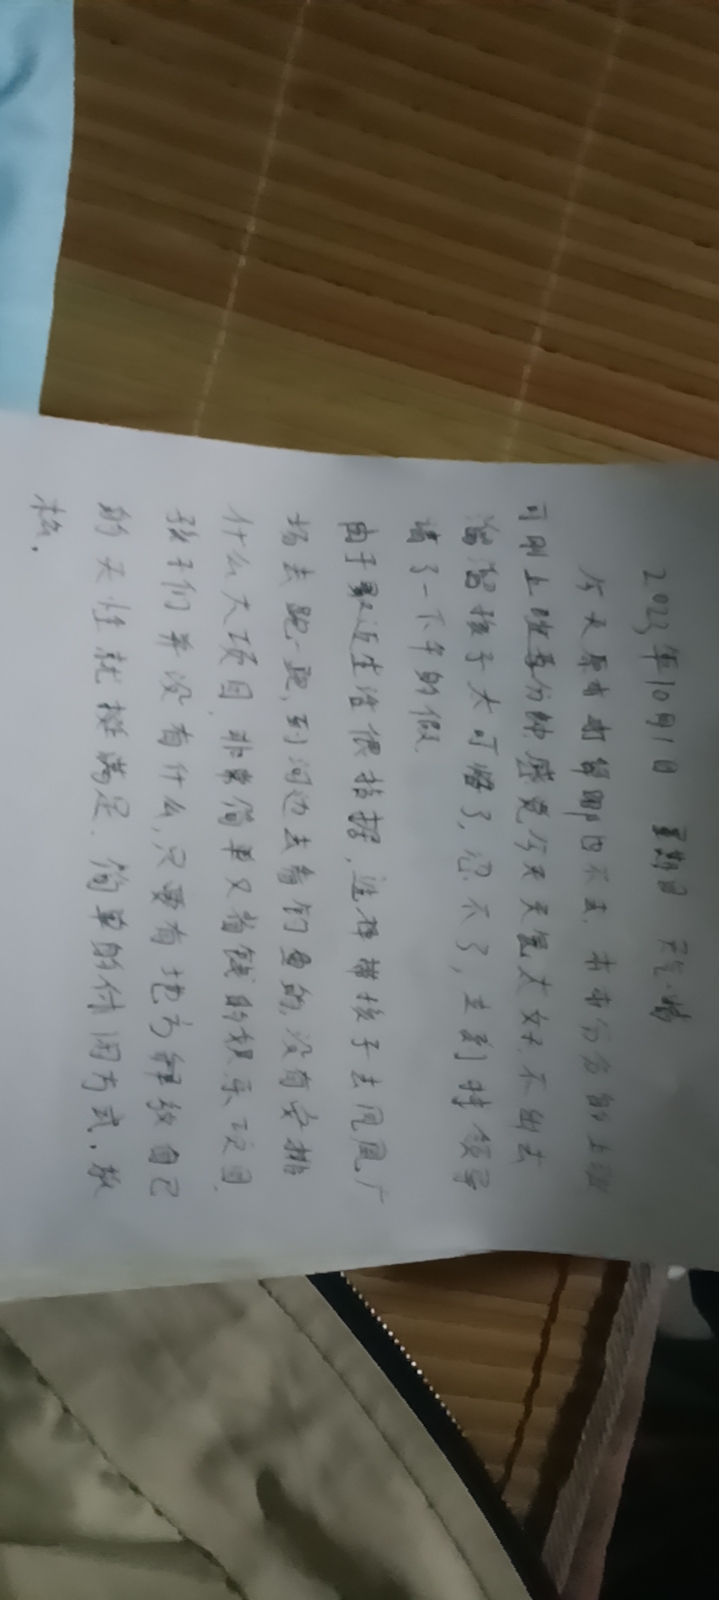 2023年10月1日 星期日 天气:晴
今天原本打算哪也不去,本本分分的上班
可刚上班每分钟感觉今天天气太好,不出去
溜溜孩子太可惜了,忍不了,立刻特领导
请了一下午的假
由于最近生活很拮据,选择带孩子去凤凰广
场去跑一跑,到河边去看钓鱼的,没有安排
什么大项目,非常简单又省钱的娱乐项目,
孩子们并没有什么,只要有地方释放自己
的天性就挺满足.简单的休闲方式,放
松.